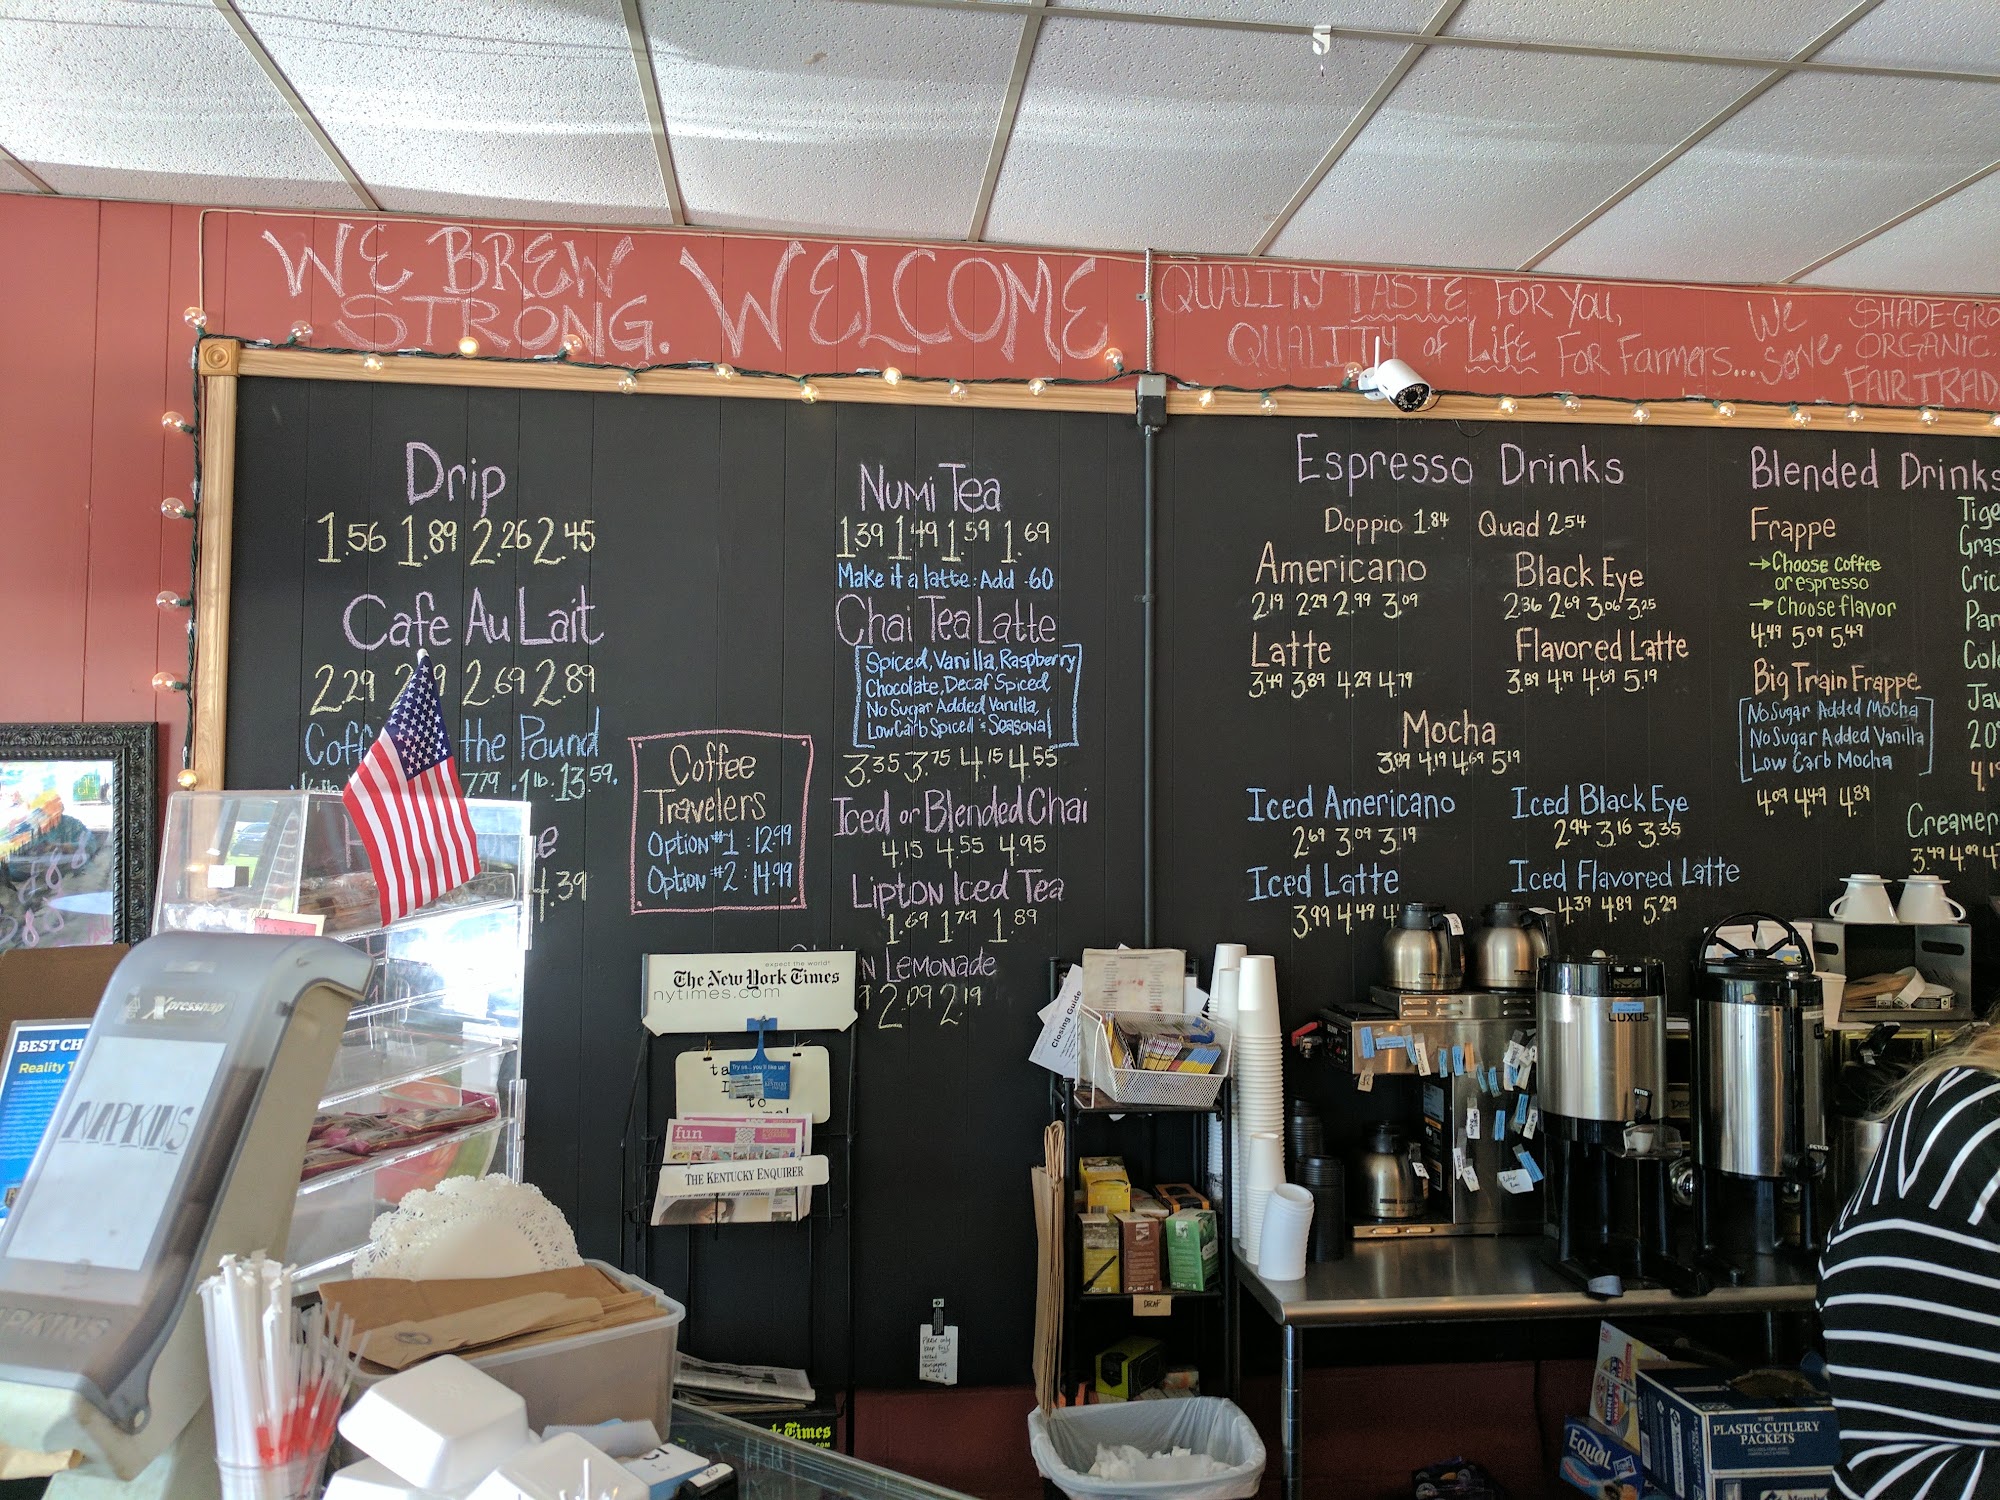 WE BREW
STRONG.
WELCOME
QUALITY TASTE FOR YOU,
QUALITY of Life FOR Farmers...
We
serve
SHADE-GRO
ORGANIC.
FAIR TRAD
Drip
1.56 1.89 2.26 2.45
Cafe Au Lait
2.29 2.69 2.89
the Pound
7.79 1 lb. 13.59.
4.39
Coffee
Travelers
Option #1: 12.99
Option #2: 14.99
Numi Tea
1.39 1.49 1.59 1.69
Make it a latte: Add .60
Chai Tea Latte
Spiced, Vanilla, Raspberry
Chocolate, Decaf Spiced,
No Sugar Added Vanilla,
Low Carb Spiced & Seasonal
3.35 3.75 4.15 4.55
Iced or Blended Chai
4.15 4.55 4.95
Lipton Iced Tea
1.69 1.79 1.89
N LEMONADE
9 2.09 2.19
Espresso Drinks
Doppio 1.84 Quad 2.54
Americano
2.19 2.29 2.99 3.09
Black Eye
2.36 2.69 3.06 3.25
Latte
3.49 3.89 4.29 4.79
Flavored Latte
3.89 4.19 4.69 5.19
Mocha
3.89 4.19 4.69 5.19
Iced Americano
2.69 3.09 3.19
Iced Black Eye
2.94 3.16 3.35
Iced Latte
3.99 4.49 4
Iced Flavored Latte
4.39 4.89 5.29
Blended Drinks
Frappe
→ Choose coffee
or espresso
→ Choose flavor
4.49 5.09 5.49
Big Train Frappe
No Sugar Added Mocha
No Sugar Added Vanilla
Low Carb Mocha
4.09 4.49 4.89
Tige
Gras
Cric
Pan
Col
Jav
20
4.1
Creamer
3.49 4.09 4
expect the world
The New York Times
nytimes.com
Try us...you'll like us!
to
fun
THE KENTUCKY ENQUIRER
Closing Guide
DECAF
LUXUS
FETCO
FETCO
Xpressnap
NAPKINS
NAPKINS
BEST CH
Reality T
k Times
Equal
WHITE
PLASTIC CUTLERY
PACKETS
Member